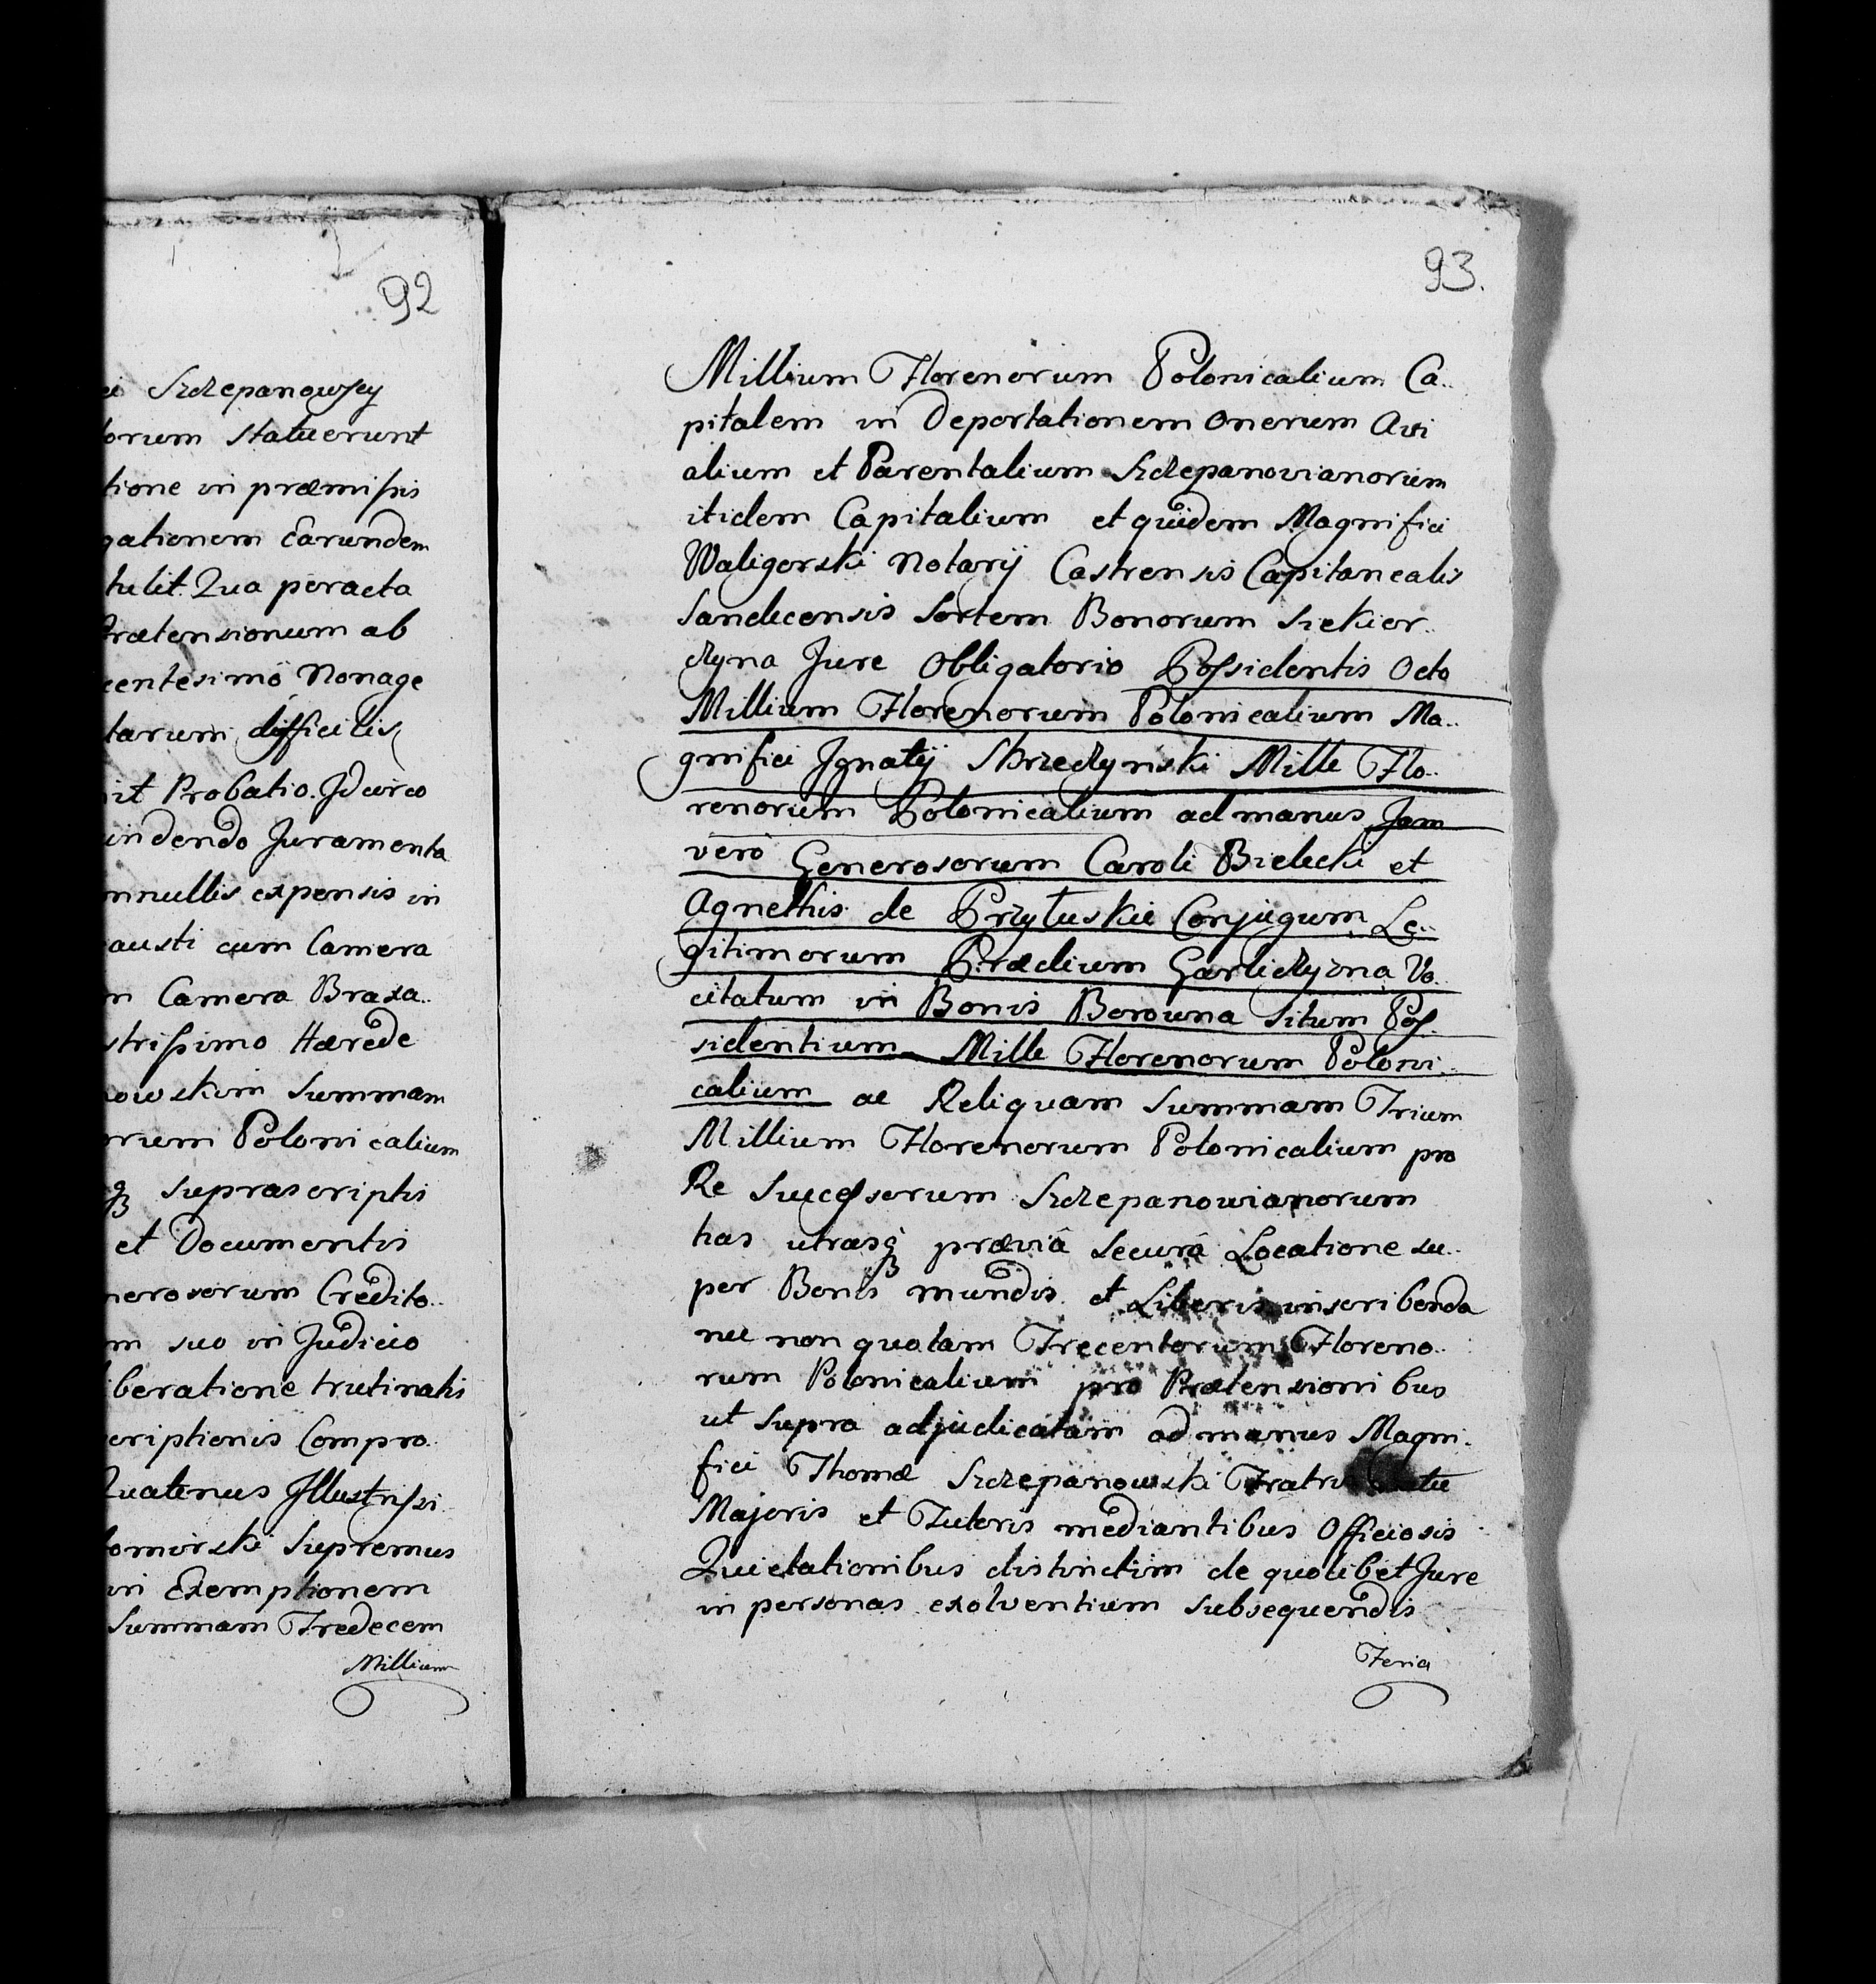 92
ei Szczepanowscy
torum statuerunt
tione in præmissis
gationem Earundem
tulit. Qua peracta
Prætensionum ab
centesimô Nonage
tarum difficilis
it Probatio. Idcirco
indendo Juramenta
nnullis expensis in
austi cum Camera
n Camera Braxa..
strissimo Hærede
owskim Summam
orum Polonicalium
suprascriptis
et Documentis
nerosorum Credito..
m suo in Judicio
liberatione trutinatis
scriptionis Compro..
Quatenus Illustrissi..
tomirski Supremus
in Exemptionem
Summam Tredecem
Millium
93.
Millium Florenorum Polonicalium Ca..
pitalem in Deportationem Onerum Avi
alium et Parentalium Szczepanovianorum
itidem Capitalium et quidem Magnifici
Waligorski Notarij Castrensis Capitanealis
Sandecensis Sortem Bonorum Siekier..
czyna Jure Obligatorio Possidentis Octo
Millium Florenorum Polonicalium Ma..
gnifici Ignatij Skrzedyński Mille Flo..
renorum Polonicalium ad manus Jam
verò Generosorum Caroli Bielecki et
Agnethis de Przyłuskie Conjugum Le..
gitimorum Prædium Garliczyzna Vo..
citatum in Bonis Borowna Situm Pos..
sidentium Mille Florenorum Poloni..
calium ac Reliquam Summam Trium
Millium Florenorum Polonicalium pro
Re Successorum Szczepanowianorum
has utrasq præviâ Securâ Locatione su..
per Bonis mundis et Liberis inscribenda
nec non quotam Trecentorum Floreno..
rum Polonicalium pro Prætensionibus
ut Supra adjudicatam ad manus Magni..
fici Thomæ Szczepanowski Fratris
Majoris et Tutoris mediantibus Officiosis
Quietationibus distinctim de quolibet Jure
in personas exolventium subsequendis
Feria